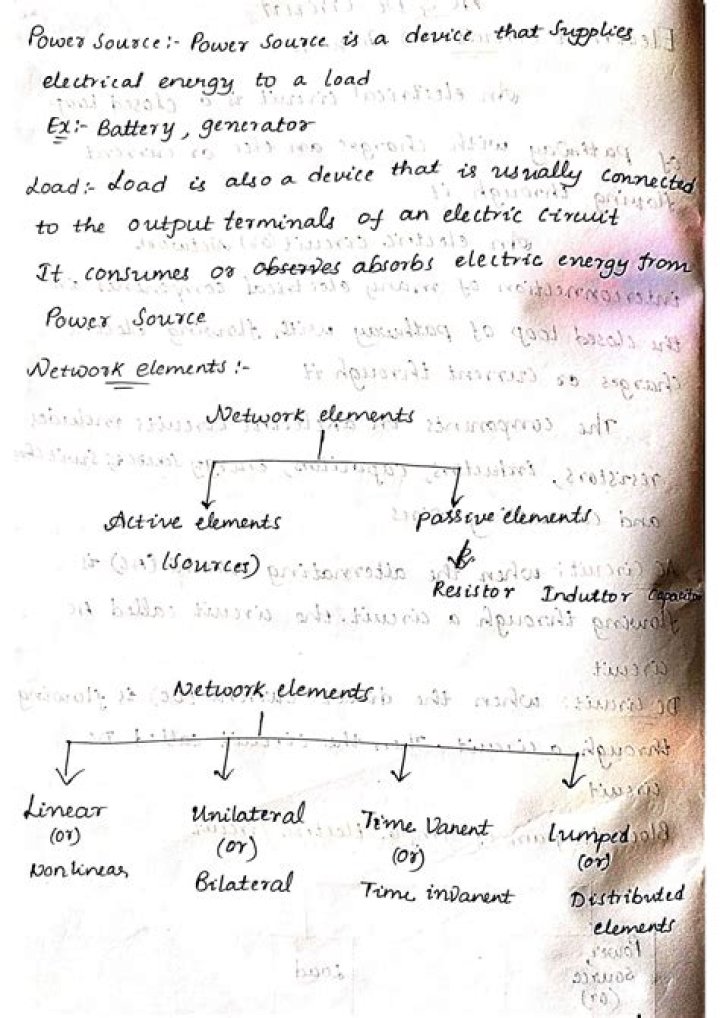 Power Source:- Power Source is a device that Supplies
electrical energy to a load
Ex:- Battery, generator
Load:- Load is also a device that is usually connected
to the output terminals of an electric Circuit
It consumes or observes absorbs electric energy from
Power Source
Network elements:-
Network elements
Active elements Passive elements
(Sources)
Resistor Induttor Capacitor
Network elements
Linear Unilateral Time Vanent Lumped
(or) (or) (or) (or)
Nonlinear Bilateral Time invanent Distributed
elements